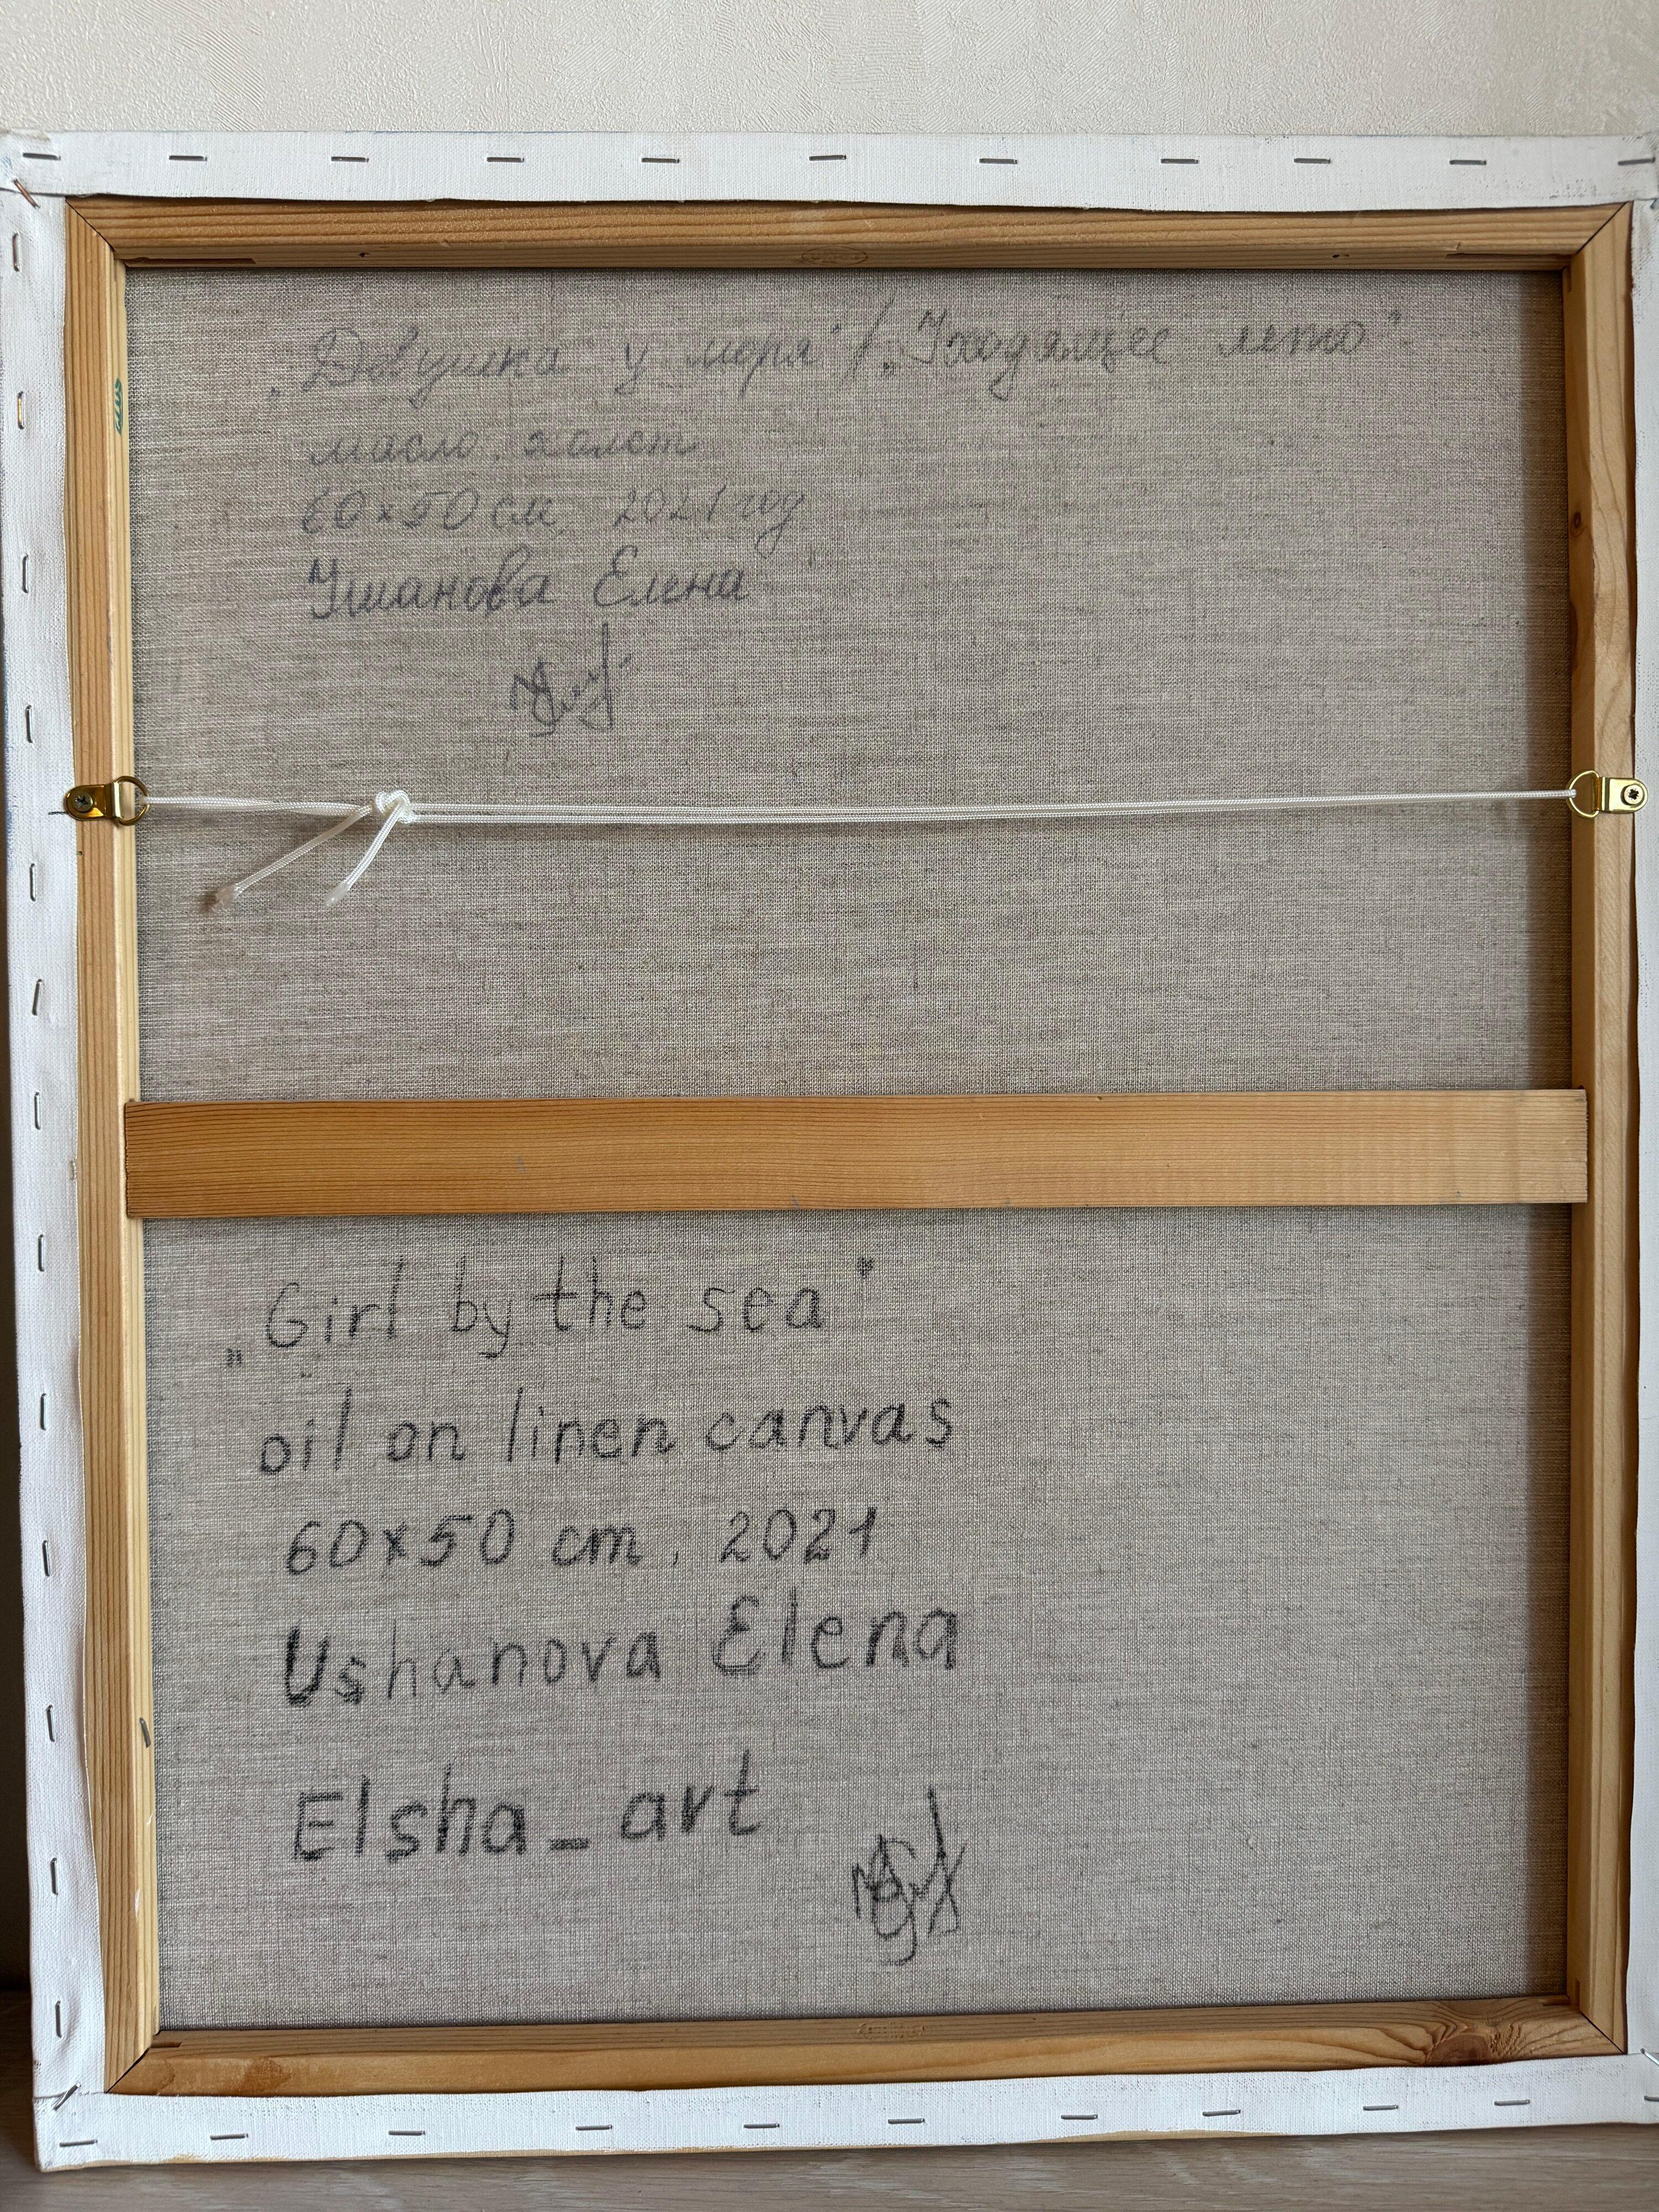 „Девушка у моря" / „Уходящее лето"
масло, холст
60×50 см, 2021 год
Ушанова Елена
„Girl by the sea"
oil on linen canvas
60×50 cm, 2021
Ushanova Elena
Elsha_art